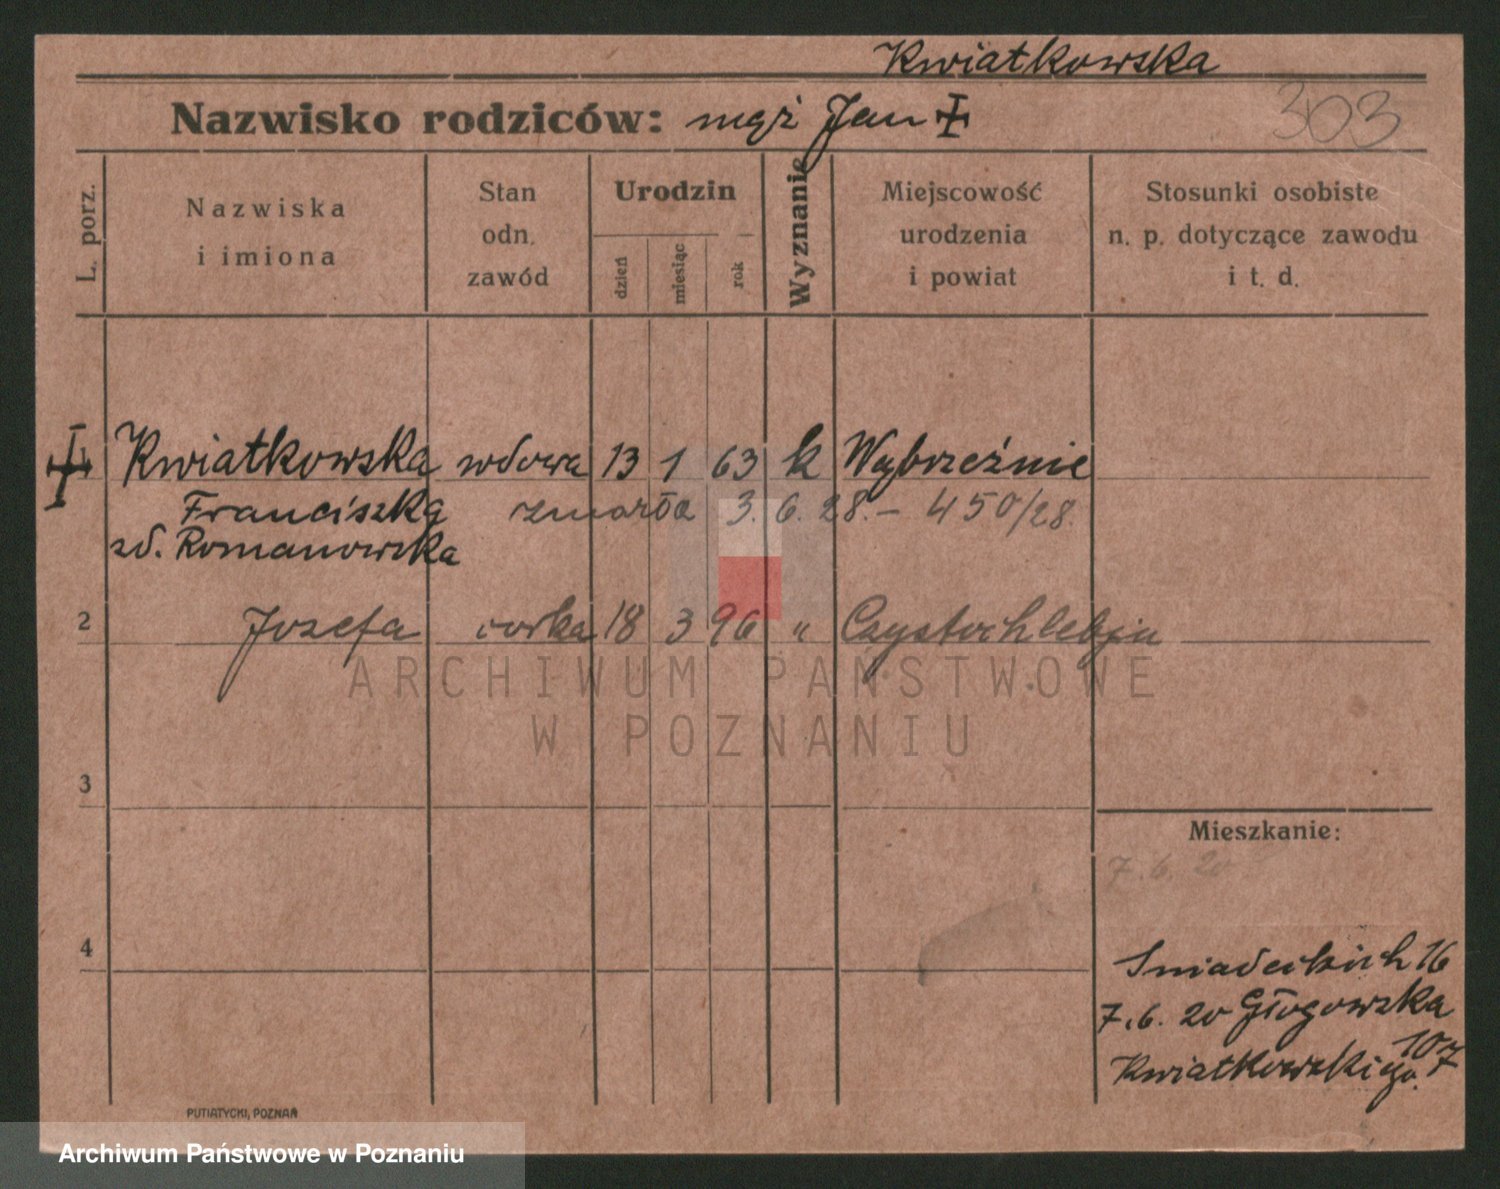 Kwiatkowska
Nazwisko rodziców: mąż Jan ✝
303
L. porz.
Nazwiska
i imiona
Stan
odn.
zawód
Urodzin
dzień
miesiąc
rok
Wyznanie
Miejscowość
urodzenia
i powiat
Stosunki osobiste
n. p. dotyczące zawodu
i t. d.
✝ Kwiatkowska wdowa 13 1 63 k Wybrzeźnie
Franciszka zmarła 3. 6. 28. – 450/28.
zd. Romanowska
2 Jozefa corka 18 3 96 " Czystochlebju
ARCHIWUM PAŃSTWOWE
W POZNANIU
3
Mieszkanie:
7. 6. 20
4
Sniadeckich 16
7. 6. 20 Głogowska
107
Kwiatkowskiego.
PUTIATYCKI, POZNAŃ
Archiwum Państwowe w Poznaniu